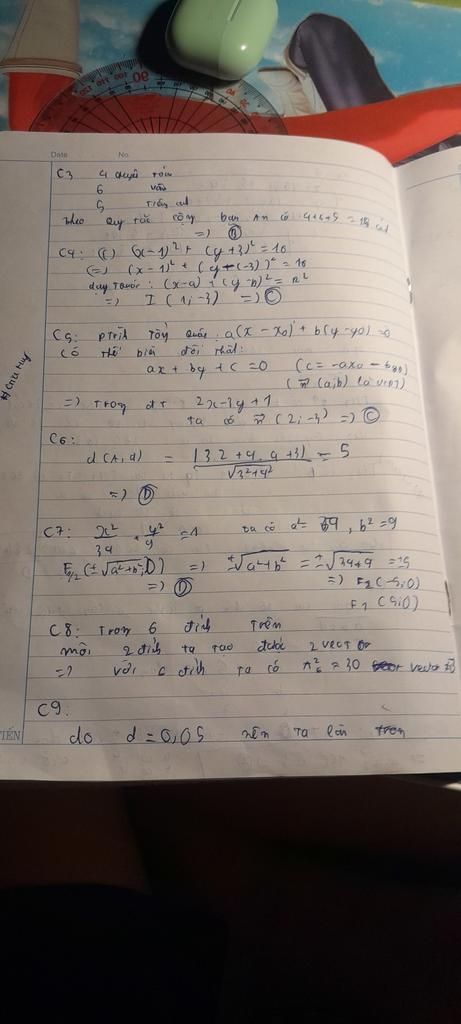 Date No.
C3 4 chuyên toán
6 văn
5 tiếng anh
theo quy tắc cộng bạn An có 4+6+5 = 15 cách
=> B
C4: (C) (x-1)² + (y+3)² = 16
(=) (x-1)² + (y-(-3))² = 16
dạng trước: (x-a)² + (y-b)² = R²
=> I (1;-3) => C
C5: ptrình tổng quát: a(x-x0) + b(y-y0) = 0
có thể biến đổi thành:
ax + by + c = 0 (c = -ax0 - by0)
(n (a;b) là vtpt)
=> trong dt 2x-3y+1
ta có n (2;-3) => C
#Gia Huy
C6:
d(A,d) = |3.2 + 4.4 + 3| / √3²+4² = 5
=> D
C7: x²/34 + y²/9 = 1 ta có a² = 34, b² = 9
F1/2 (±√a²+b²;0) => ±√a²+b² = ±√34+9 = ±5
=> D => F2 (-5;0)
F1 (5;0)
C8: Trong 6 đỉnh trên
mỗi 2 đỉnh ta tạo được 2 vectơ
=> với 6 đỉnh ta có A²6 = 30 vectơ
C9.
do d = 0,05 nên ta làm tròn
TIẾN